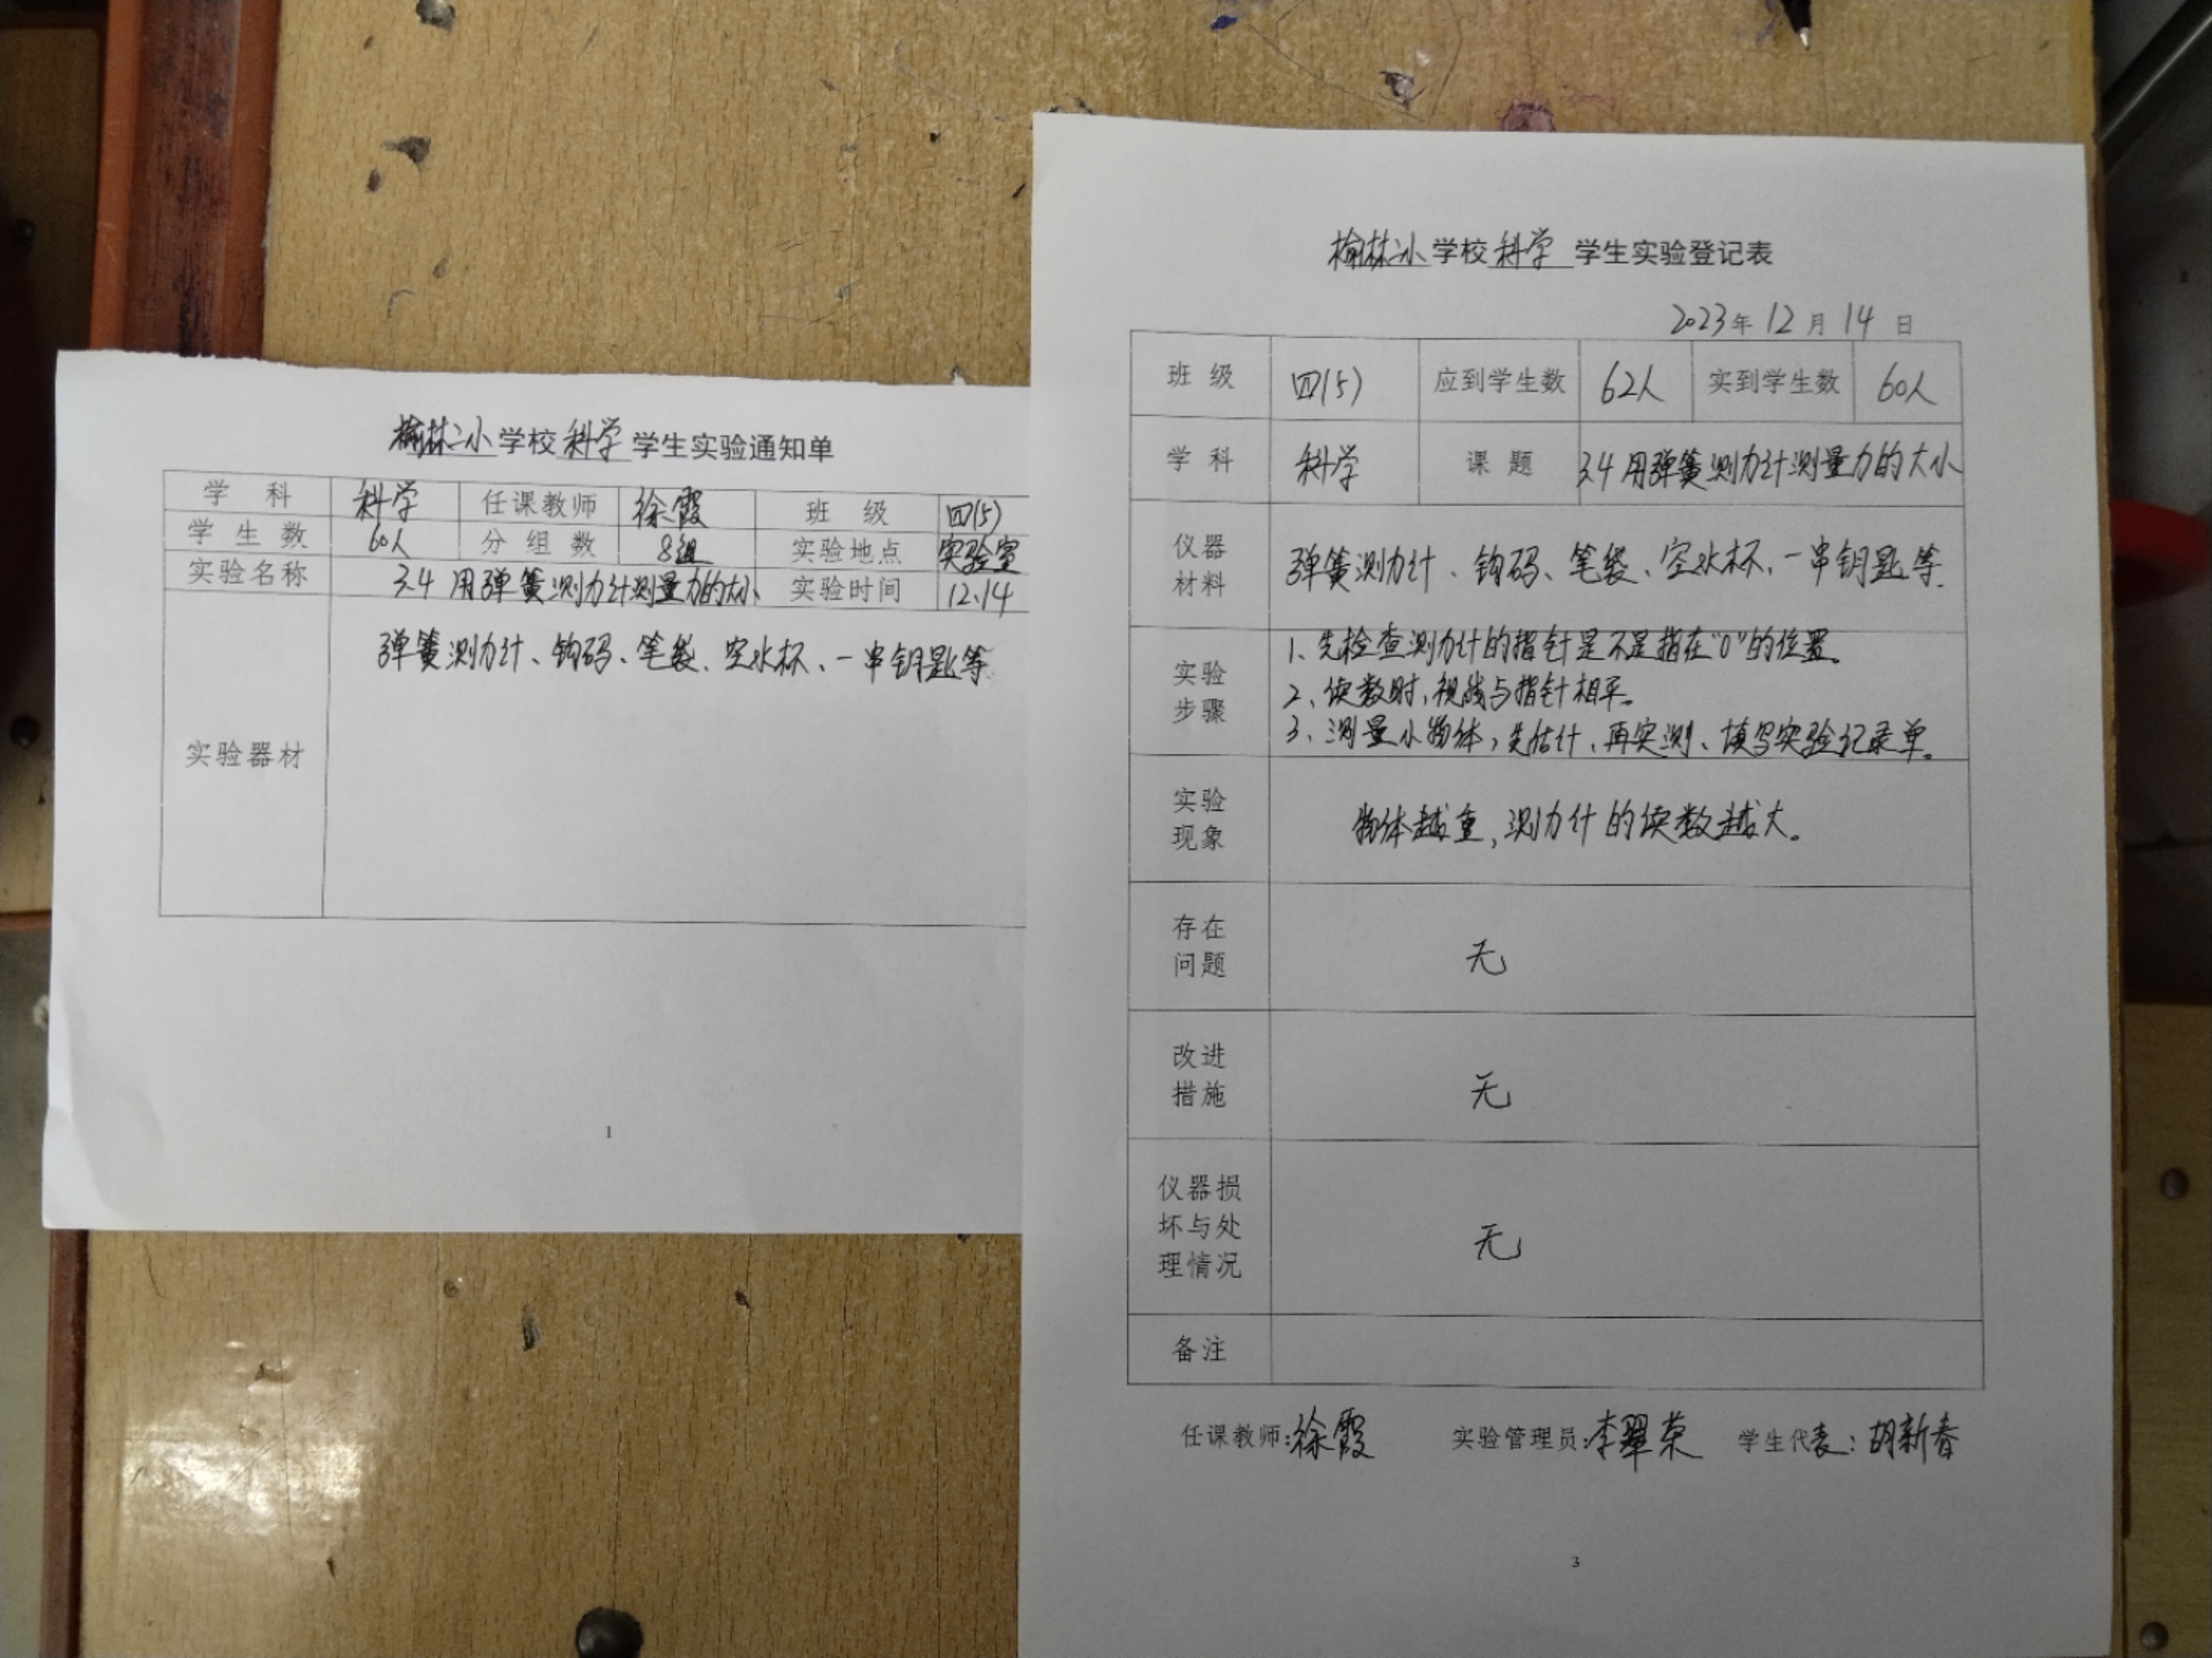 榆林二小学校科学学生实验通知单
学科 科学 任课教师 徐霞 班级 四(5)
学生数 60人 分组数 8组 实验地点 实验室
实验名称 3.4 用弹簧测力计测量力的大小 实验时间 12.14
实验器材 弹簧测力计、钩码、笔袋、空水杯、一串钥匙等
1
榆林二小学校科学学生实验登记表
2023年12月14日
班级 四(5) 应到学生数 62人 实到学生数 60人
学科 科学 课题 3.4 用弹簧测力计测量力的大小
仪器
材料
弹簧测力计、钩码、笔袋、空水杯、一串钥匙等.
实验
步骤
1、先检查测力计的指针是不是指在"0"的位置。
2、读数时,视线与指针相平。
3、测量小物体,先估计、再实测、填写实验记录单。
实验
现象
物体越重,测力计的读数越大。
存在
问题
无
改进
措施
无
仪器损
坏与处
理情况
无
备注
任课教师:徐霞 实验管理员:李翠荣 学生代表:胡新春
3